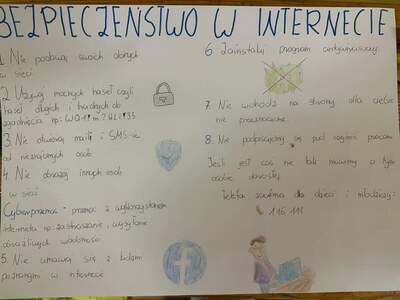 BEZPIECZEŃSTWO W INTERNECIE
1. Nie podawaj swoich danych
w sieci
2. Używaj mocnych haseł czyli
haseł długich i trudnych do
zgadnięcia np:
3. Nie otwieraj maili i SMS-ów
od nieznajomych osób
4. Nie obrażaj innych osób
w sieci
Cyberprzemoc - przemoc z wykorzystaniem
internetu np: zastraszanie, wysyłanie
obraźliwych wiadomości
5. Nie umawiaj się z ludźmi
poznanymi w internecie
6. Zainstaluj program antywirusowy
7. Nie wchodź na strony dla ciebie
nie przeznaczone.
8. Nie podpisujemy się pod czyjąś pracą
Jeśli jest coś nie tak mówimy o tym
osobie dorosłej
Telefon zaufania dla dzieci i młodzieży:
116 111
f